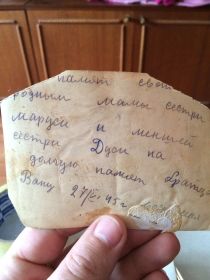 памят свои
родным мамы сестри
маруси и меншей
сестри Дуси на
долгую памят братца
Вану 27/ 45 г